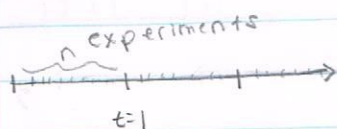 n experiments
t=1